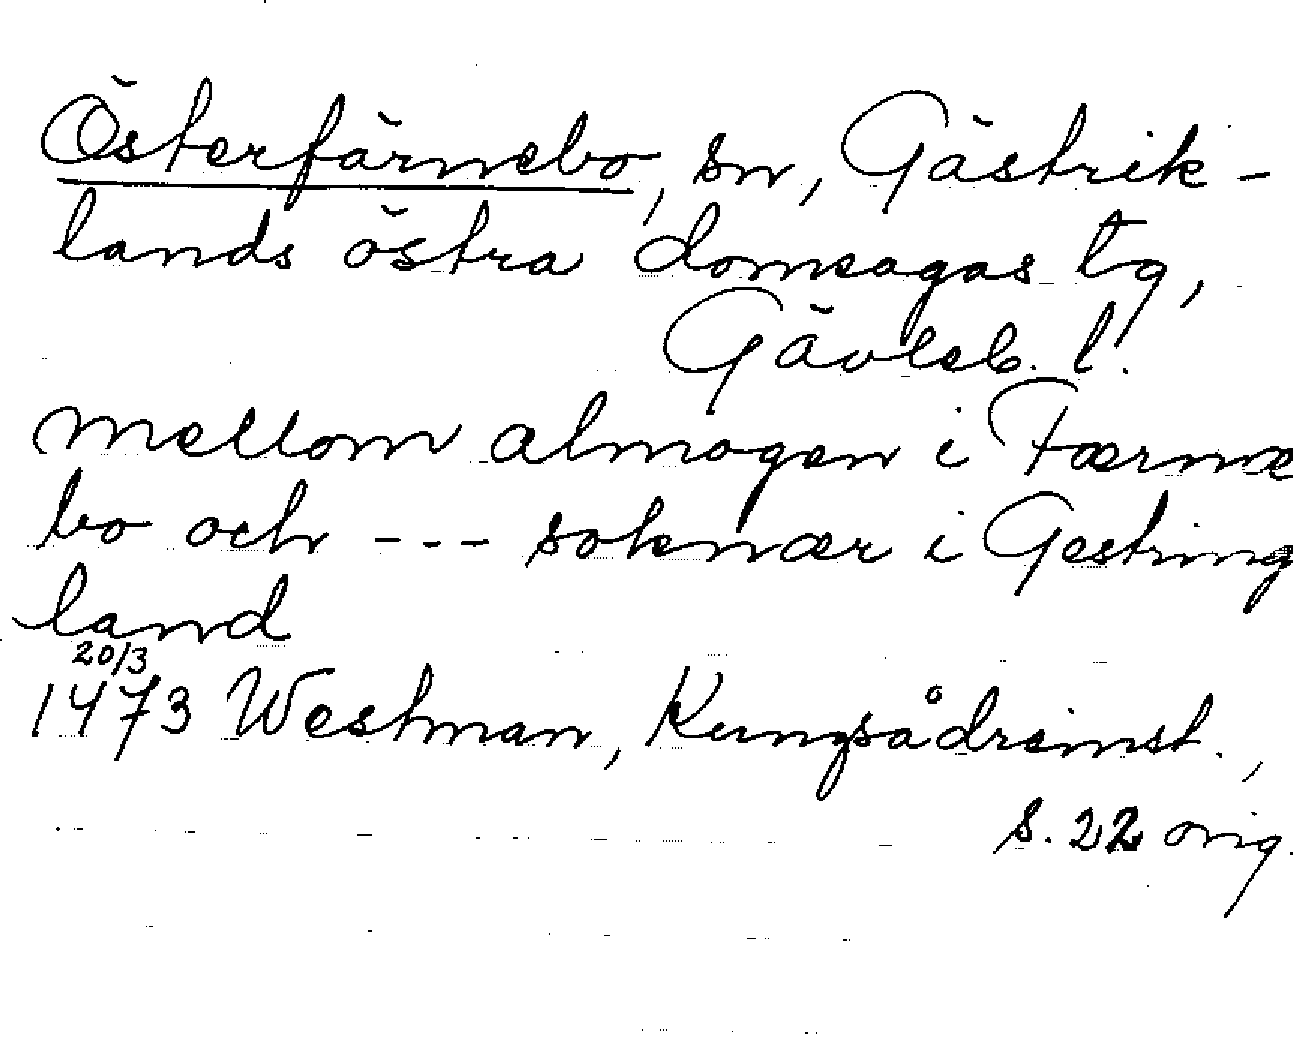 Österfärnebo, sn, Gästrik-
lands östra domsagas tg,
Gävleb. l.
mellom almogen i Færnæ
bo och --- soknær i Gestring
land
20/3
1473 Westman, Kungsådreinst.,
s. 22 orig.